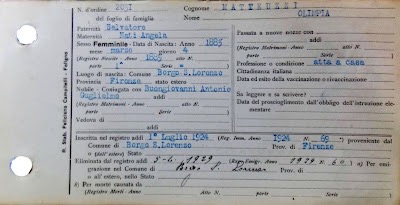 N. d'ordine 2031 Cognome MATTEUZZI
del foglio di famiglia Nome OLIMPIA
Paternità Salvatore
Maternità Nati Angela
Sesso Femminile - Data di Nascita: Anno 1885
mese marzo giorno 4
(Registro Nascite - Anno 1885 Atto N.
parte 1^ Serie )
Luogo di nascita: Comune Borgo S.Lorenzo
Provincia Firenze Stato estero
Nubile - Coniugata con Buongiovanni Antonio
Guglielmo addì
(Registro Matrimoni - Anno Atto N.
parte Serie )
Vedova di
addì
Passata a nuove nozze con
addì
(Registro Matrimoni - Anno Atto N.
parte Serie )
Professione o condizione atta a casa
Cittadinanza italiana
Data ed esito della vaccinazione o rivaccinazione
Sa leggere e sa scrivere?
Data del proscioglimento dall'obbligo dell'istruzione elementare
Inscritta nel registro addì 1° Luglio 1924 (Reg. Imm. Anno 1924 N. 69 ) proveniente dal
Comune di Borgo S.Lorenzo Prov. di Firenze
o (dall'estero) Stato
Eliminata dal registro addì 1929 (Regis. Emigr. Anno 1929 N. 60 ) a) Per emigrazione
nel Comune di Borgo S. Lorenzo Prov. di
o all'estero, nello Stato
b) Per morte causata da
(Registro Morti - Anno Atto N. parte Serie )
R. Stab. Feliciano Campitelli - Foligno